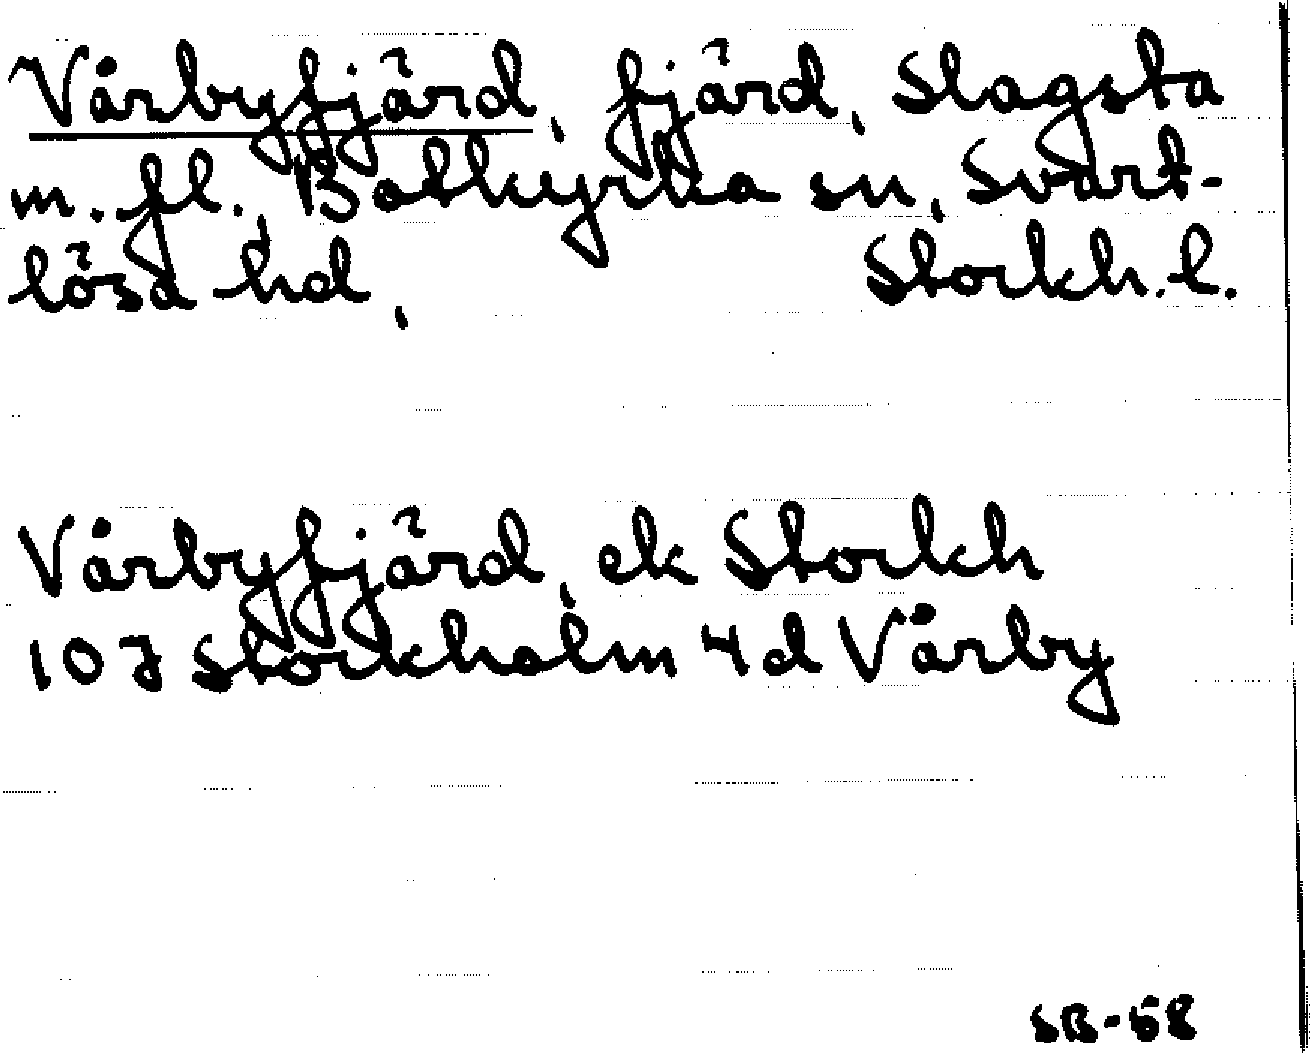 Vårbyfjärd, fjärd, Slagsta
m. fl., Botkyrka sn, Svart-
lösa hd, Stockh. l.
Vårbyfjärd, ek Stockh
10J Stockholm 4d Vårby
SB-58